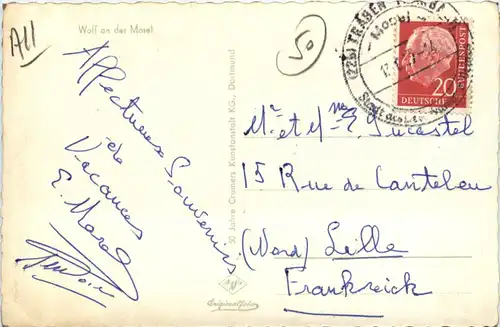 A11
Wolf an der Mosel
50
(22b) TRABEN-TRARBACH
Mosel
20
DEUTSCHE BUNDESPOST
Affectueux Souvenirs
de
Vacances
E. Morel
50 Jahre Cramers Kunstanstalt KG., Dortmund
Mr et Mme E. Ducastel
15 Rue de Canteleu
(Nord) Lille
Frankreich
Originalfoto